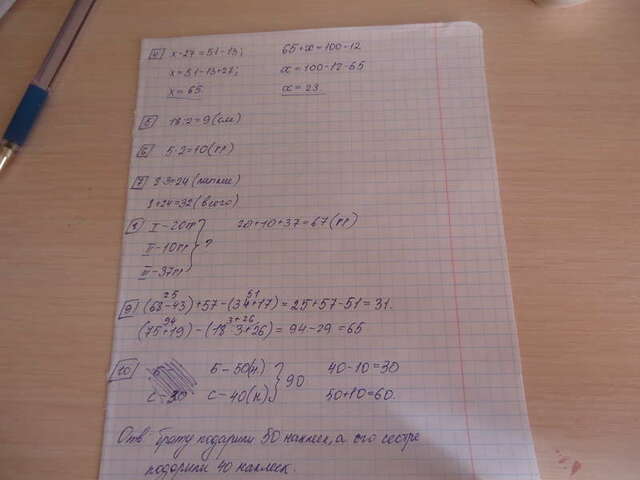 4 x-27=51-13; 65+x=100-12
x=51-13+27; x=100-12-65
x=65 x=23
5 18:2=9(см)
6 5·2=10(гр)
7 8·3=24(липкие)
8+24=32(всего)
8 I-20гр 20+10+37=67(гр)
II-10гр ?
III-37гр
25 51
9 (68-43)+57-(34+17)=25+57-51=31.
94 3+26
(75+19)-(18:3+26)=94-29=65
10 Б-50(н) 40-10=30
С-30 С-40(н) 90 50+10=60.
Отв брату подарили 50 наклеек, а его сестре
подарили 40 наклеек.